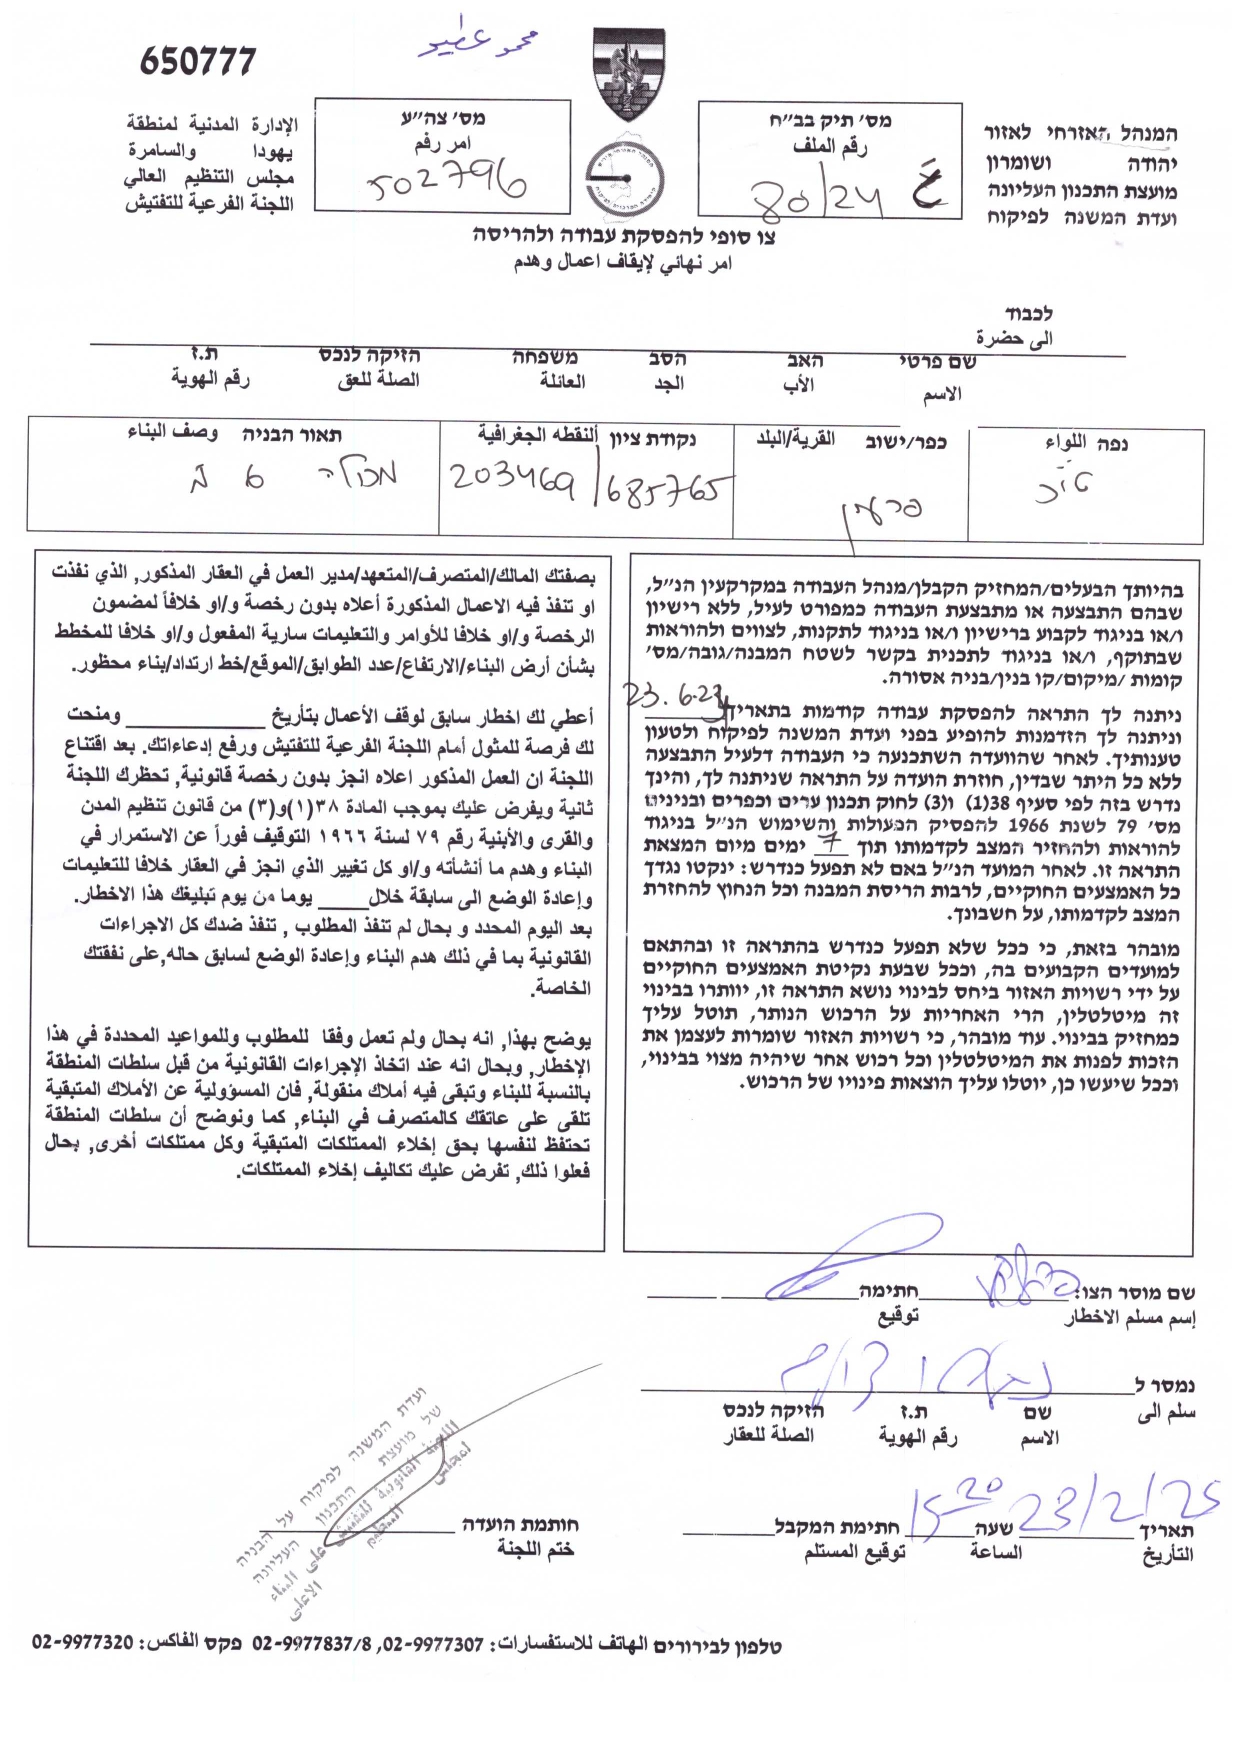 محمد عطيه
650777
המנהל האזרחי לאזור
יהודה ושומרון
מועצת התכנון העליונה
ועדת המשנה לפיקוח
מס׳ תיק בב״ח
رقم الملف
80/24
מס׳ צה״ע
امر رقم
502796
الإدارة المدنية لمنطقة
يهودا والسامرة
مجلس التنظيم العالي
اللجنة الفرعية للتفتيش
צו סופי להפסקת עבודה ולהריסה
امر نهائي لإيقاف اعمال وهدم
לכבוד
الى حضرة
שם פרטי האב הסב משפחה הזיקה לנכס ת.ז
الاسم الأب الجد العائلة الصلة للعق رقم الهوية
נפה اللواء
כפר/ישוב القرية/البلد
פרעון
נקודת ציון ألنقطه الجغرافية
203469/685765
תאור הבניה وصف البناء
בהיותך הבעלים/המחזיק הקבלן/מנהל העבודה במקרקעין הנ״ל,
שבהם התבצעה או מתבצעת העבודה כמפורט לעיל, ללא רישיון
ו/או בניגוד לקבוע ברישיון ו/או בניגוד לתקנות, לצווים ולהוראות
שבתוקף, ו/או בניגוד לתכנית בקשר לשטח המבנה/גובה/מס׳
קומות /מיקום/קו בנין/בניה אסורה.
23.6.24
ניתנה לך התראה להפסקת עבודה קודמות בתאריך
וניתנה לך הזדמנות להופיע בפני ועדת המשנה לפיקוח ולטעון
טענותיך. לאחר שהוועדה השתכנעה כי העבודה דלעיל התבצעה
ללא כל היתר שבדין, חוזרת הועדה על התראה שניתנה לך, והינך
נדרש בזה לפי סעיף 38(1) ו(3) לחוק תכנון ערים וכפרים ובנינים
מס׳ 79 לשנת 1966 להפסיק הפעולות והשימוש הנ״ל בניגוד
להוראות ולהחזיר המצב לקדמותו תוך 7 ימים מיום המצאת
התראה זו. לאחר המועד הנ״ל באם לא תפעל כנדרש: ינקטו נגדך
כל האמצעים החוקיים, לרבות הריסת המבנה וכל הנחוץ להחזרת
המצב לקדמותו, על חשבונך.
מובהר בזאת, כי ככל שלא תפעל כנדרש בהתראה זו ובהתאם
למועדים הקבועים בה, וככל שבעת נקיטת האמצעים החוקיים
על ידי רשויות האזור ביחס לבינוי נושא התראה זו, יוותרו בבינוי
זה מיטלטלין, הרי האחריות על הרכוש הנותר, תוטל עליך
כמחזיק בבינוי. עוד מובהר, כי רשויות האזור שומרות לעצמן את
הזכות לפנות את המיטלטלין וכל רכוש אחר שיהיה מצוי בבינוי,
וככל שיעשו כן, יוטלו עליך הוצאות פינויו של הרכוש.
بصفتك المالك/المتصرف/المتعهد/مدير العمل في العقار المذكور, الذي نفذت
او تنفذ فيه الاعمال المذكورة أعلاه بدون رخصة و/او خلافاً لمضمون
الرخصة و/او خلافا للأوامر والتعليمات سارية المفعول و/او خلافا للمخطط
بشأن أرض البناء/الارتفاع/عدد الطوابق/الموقع/خط ارتداد/بناء محظور.
أعطي لك اخطار سابق لوقف الأعمال بتأريخ ومنحت
لك فرصة للمثول أمام اللجنة الفرعية للتفتيش ورفع إدعاءاتك. بعد اقتناع
اللجنة ان العمل المذكور اعلاه انجز بدون رخصة قانونية, تحظرك اللجنة
ثانية ويفرض عليك بموجب المادة ٣٨(١)و(٣) من قانون تنظيم المدن
والقرى والأبنية رقم ٧٩ لسنة ١٩٦٦ التوقيف فوراً عن الاستمرار في
البناء وهدم ما أنشأته و/او كل تغيير الذي انجز في العقار خلافا للتعليمات
وإعادة الوضع الى سابقة خلال يوما من يوم تبليغك هذا الاخطار.
بعد اليوم المحدد و بحال لم تنفذ المطلوب , تنفذ ضدك كل الاجراءات
القانونية بما في ذلك هدم البناء وإعادة الوضع لسابق حاله,على نفقتك
الخاصة.
يوضح بهذا, انه بحال ولم تعمل وفقا للمطلوب وللمواعيد المحددة في هذا
الإخطار, وبحال انه عند اتخاذ الإجراءات القانونية من قبل سلطات المنطقة
بالنسبة للبناء وتبقى فيه أملاك منقولة, فان المسؤولية عن الأملاك المتبقية
تلقى على عاتقك كالمتصرف في البناء, كما ونوضح أن سلطات المنطقة
تحتفظ لنفسها بحق إخلاء الممتلكات المتبقية وكل ممتلكات أخرى, بحال
فعلوا ذلك, تفرض عليك تكاليف إخلاء الممتلكات.
שם מוסר הצו: חתימה
إسم مسلم الاخطار توقيع
נמסר ל
سلم الى
שם ת.ז הזיקה לנכס
الاسم رقم الهوية الصلة للعقار
תאריך 23/2/25 שעה 15 20 חתימת המקבל
التأريخ الساعة توقيع المستلم
חותמת הועדה
ختم اللجنة
ועדת המשנה לפיקוח על הבניה
של מועצת התכנון העליונה
טלפון לבירורים الهاتف للاستفسارات: 02-9977307, 02-9977837/8 פקס الفاكس: 02-9977320